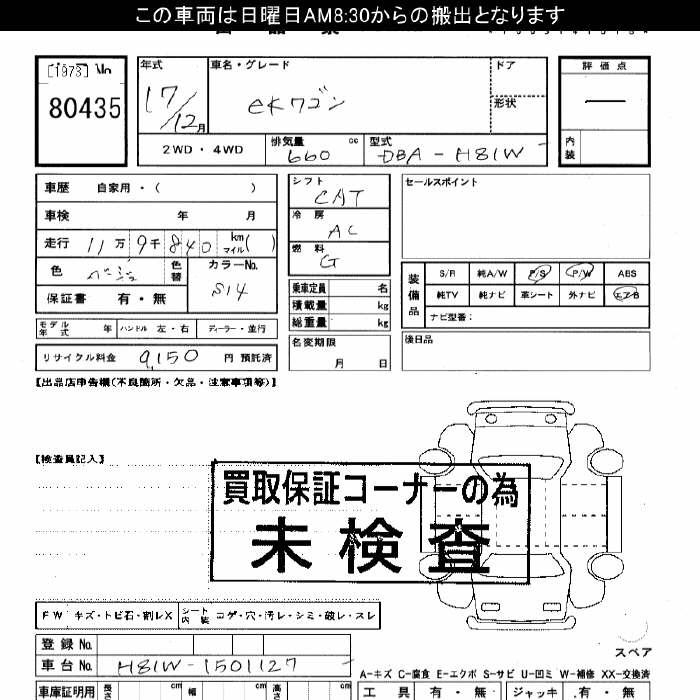 この車両は日曜日AM8:30からの搬出となります
[1973] No
80435
年式 車名・グレード ドア 評価点
17/12月 eKワゴン 形状 —
2WD・4WD 排気量 660 cc 型式 DBA-H81W 内装
車歴 自家用・( )
車検 年 月
走行 11万9千840 km マイル( )
色 ベージュ 色替 カラーNo. S14
保証書 有・無
シフト CAT
冷房 AC
燃料 G
乗車定員 名
積載量 kg
総重量 kg
名変期限 月 日
セールスポイント
装備品 S/R 純A/W P/S P/W ABS
純TV 純ナビ 革シート 外ナビ エアB
ナビ型番:
後日品
モデル年式 年 ハンドル 左・右 ディーラー・並行
リサイクル料金 9,150 円 預託済
【出品店申告欄(不良箇所・欠品・注意事項等)】
【検査員記入】
買取保証コーナーの為
未検査
FW キズ・トビ石・割レX シート内装 コゲ・穴・汚レ・シミ・破レ・スレ
登録No.
車台No. H81W-1501127
スペア
A-キズ C-腐食 E-エクボ S-サビ U-凹ミ W-補修 XX-交換済
車庫証明用 長さ cm 幅 cm 高さ cm 工具 有・無 ジャッキ 有・無